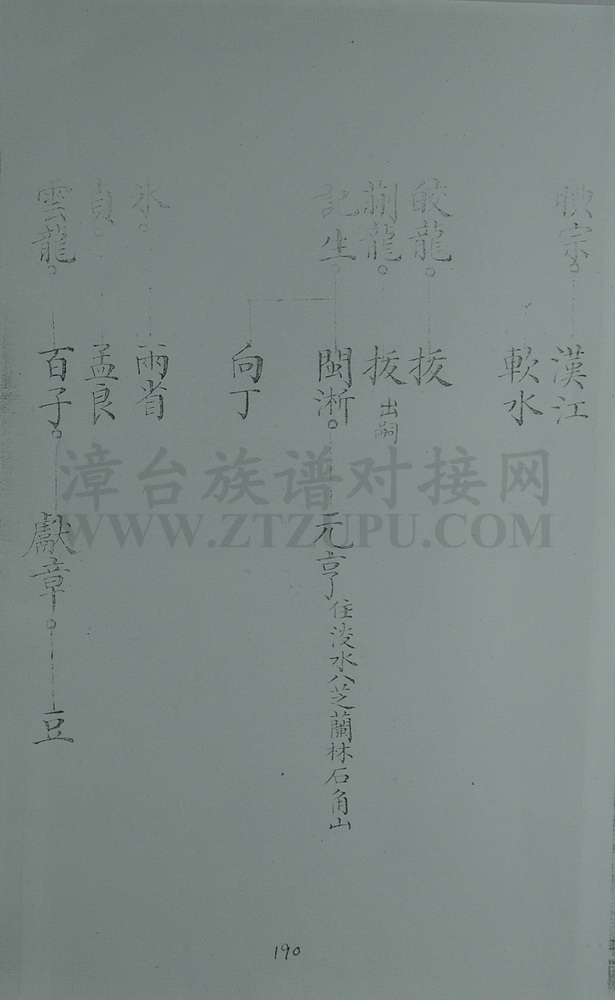 映宗
漢江
軟水
皎龍
拔
荊龍
拔 出嗣
記生
閩淅
元亨 住淡水八芝蘭林石角山
向丁
氷
雨省
貞
孟良
雲龍
百子
獻章
豆
漳台族谱对接网
WWW.ZTZUPU.COM
190